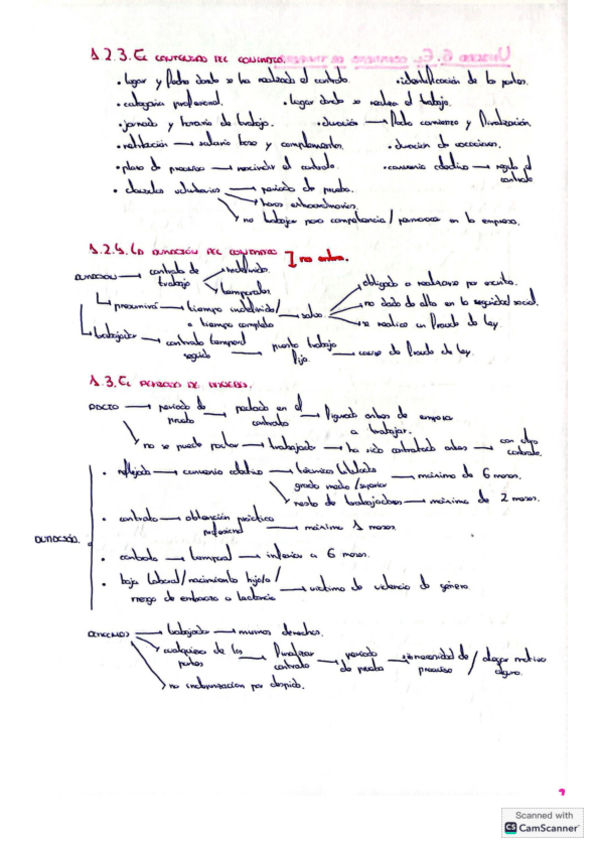 1.2.3. El contenido del contrato.
• lugar y fecha donde se ha realizado el contrato. • identificación de las partes.
• categoría profesional. • lugar donde se realiza el trabajo.
• jornada y horario de trabajo. • duración → fecha comienzo y finalización
• retribución → salario base y complementos. • duración de vacaciones.
• plazo de preaviso → rescindir el contrato. • convenio colectivo → regula el contrato
• cláusulas voluntarias → periodo de prueba.
→ horas extraordinarias.
→ no trabajar para competencia / permanecer en la empresa.
1.2.4. La duración del contrato ] no entra.
duración → contrato de trabajo → indefinido.
→ temporales.
→ presumirá → tiempo indefinido / a tiempo completo → salvo → obligado a realizarse por escrito.
→ no dado de alta en la seguridad social.
→ se realice en fraude de ley.
→ trabajador → contrato temporal seguido → puesto trabajo fijo → caso de fraude de ley.
1.3. El periodo de prueba.
pacto → periodo de prueba → pactado en el contrato → firmado antes de empezar a trabajar.
→ no se puede pactar → trabajador → ha sido contratado antes → con otro contrato.
duración.
• reflejado → convenio colectivo → técnicos titulados grado medio/superior → máximo de 6 meses.
→ resto de trabajadores → máximo de 2 meses.
• contrato → obtención práctica profesional → máximo 1 mes
• contrato → temporal → inferior a 6 meses.
• baja laboral / nacimiento hijo/a / riesgo de embarazo o lactancia → víctima de violencia de género
→ trabajador → mismos derechos.
→ cualquiera de las partes → finalizar contrato → periodo de prueba → sin necesidad de preaviso / alegar motivo alguno.
→ no indemnización por despido.
Scanned with
CS CamScanner